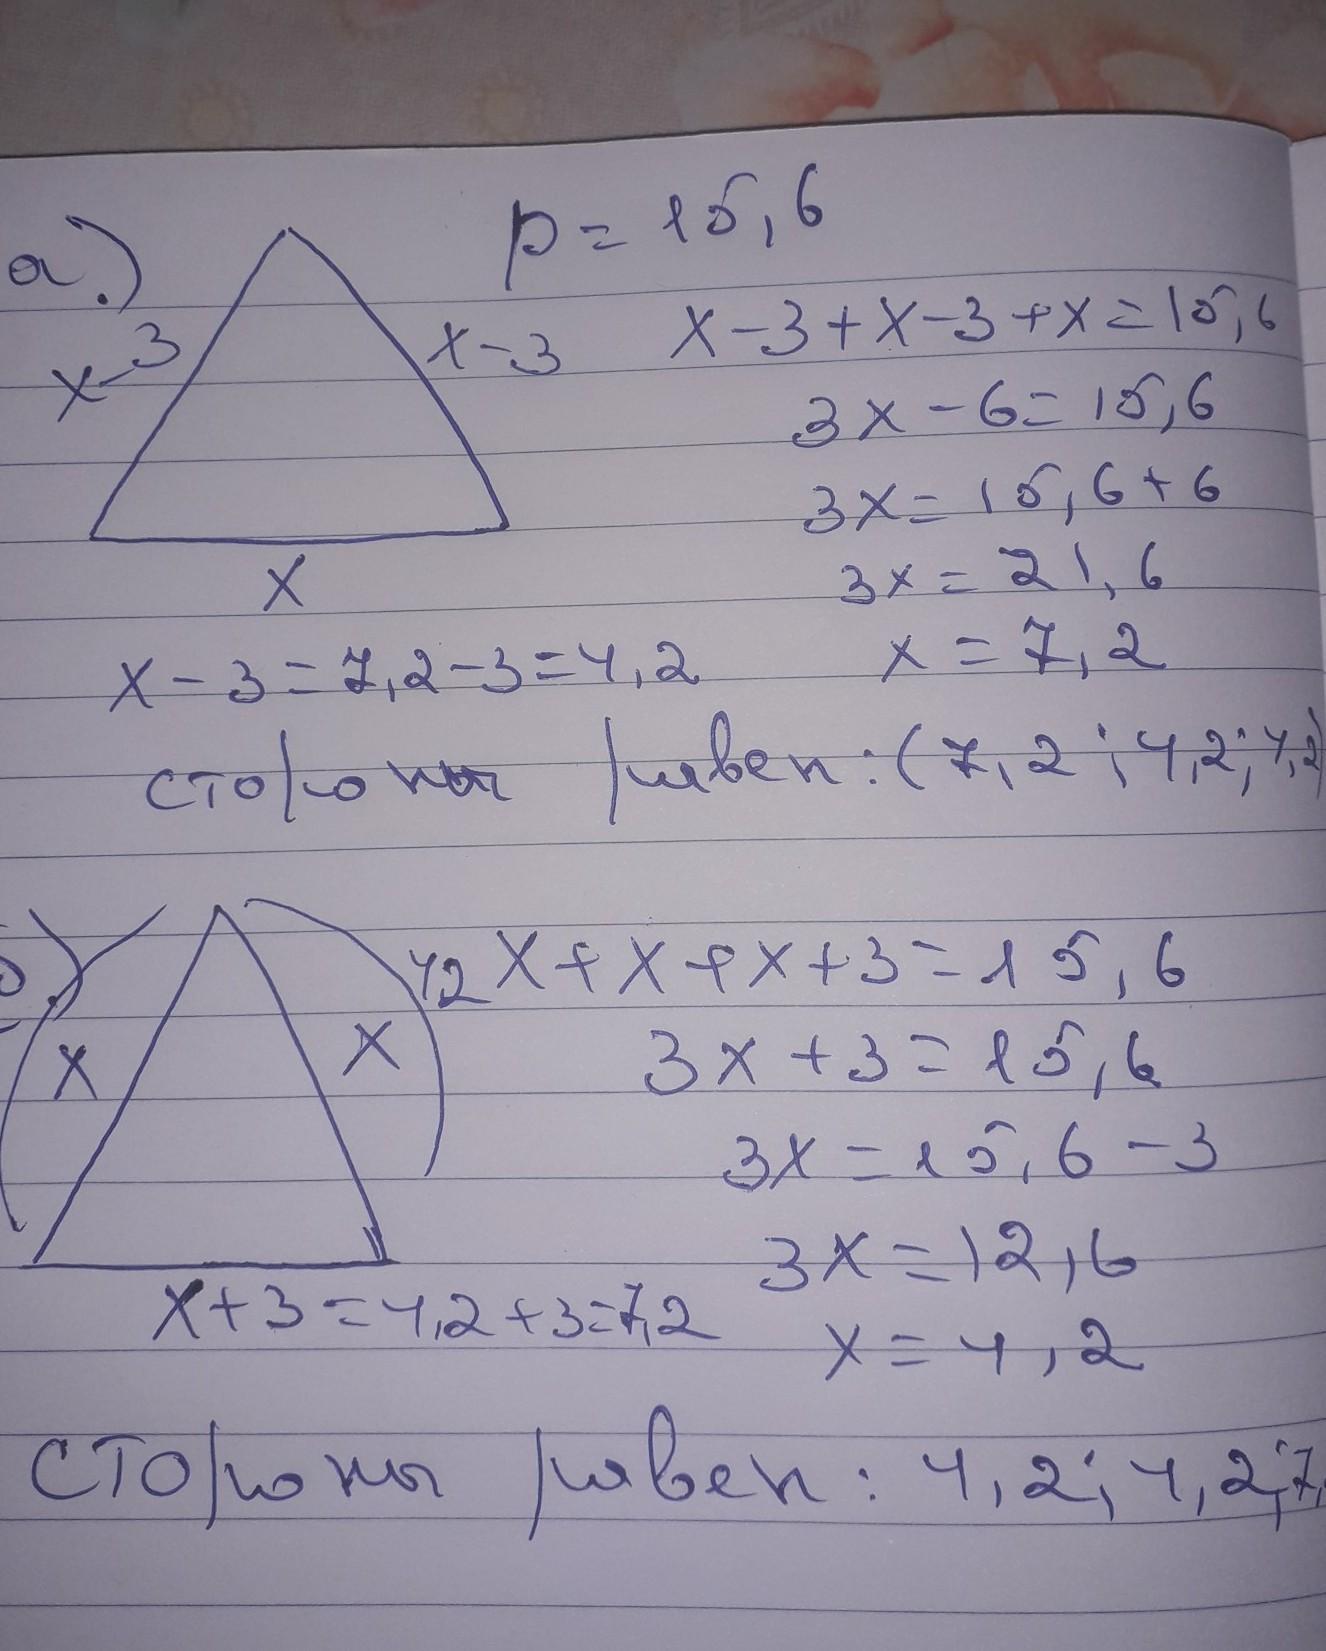 а.)
p = 15,6
x-3
x-3
x-3+x-3+x=15,6
3x-6=15,6
3x=15,6+6
3x=21,6
x
x-3=7,2-3=4,2
x=7,2
стороны равен:(7,2;4,2;4,2)
x
x
4,2
x+x+x+3=15,6
3x+3=15,6
3x=15,6-3
3x=12,6
x+3=4,2+3=7,2
x=4,2
стороны равен: 4,2;4,2;7,